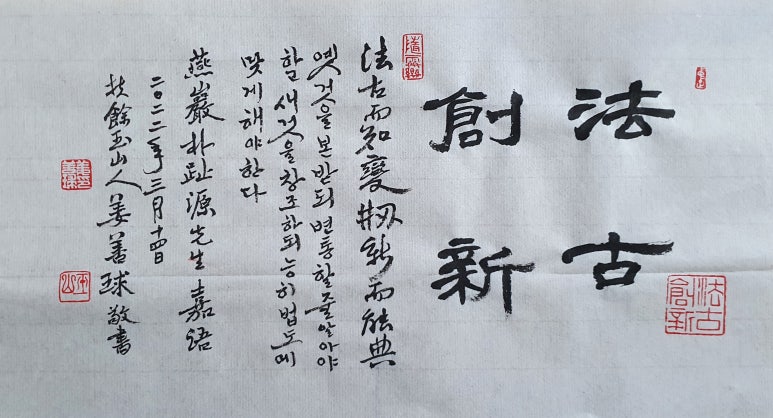 法古
創新
法古而知變刱新而能典
옛것을본받되변통할줄알아야
할새것을창조하되능히법도에
맞게해야한다
燕巖朴趾源先生嘉語
二〇二二年三月十四日
扶餘玉山人姜善球敬書
法古創新